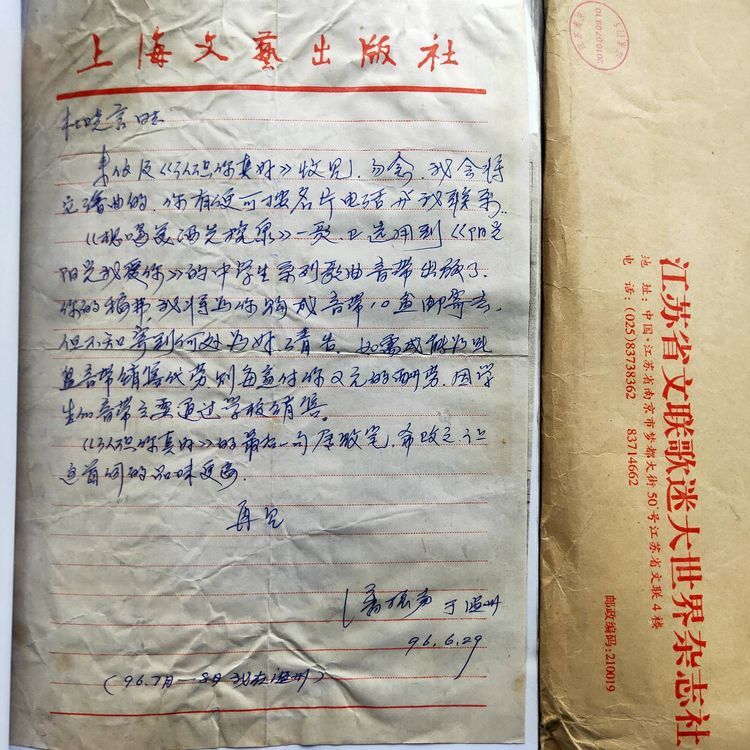 上海文艺出版社
杜晓言同志
来信及《认识你真好》收见，勿念，我会将
它谱曲的，你有便可要名片电话并我联系。
一歌，已选用到《阳光
阳光我爱你》的中学生系列歌曲音带出版了，
你的稿费，我将以你购成音带10盒邮寄去，
但不知寄到何处为好？请告，如需或能为此
盒音带销售代劳，则每盒付你2元的酬劳，因学
生的音带主要通过学校销售。
《认识你真好》的最后一句 希改之
这首词的品味更高。
再见
于温州
96.6.29
（96.7月—8月我在温州）
江苏省文联歌迷大世界杂志社
地址：中国·江苏省南京市梦都大街50号江苏省文联4楼
电话：(025)83738362 83714662
邮政编码：210019